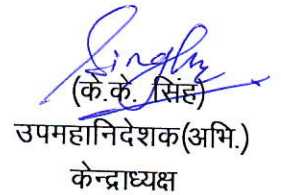 (के.के. सिंह)
उपमहानिदेशक(अभि.)
केन्द्राध्यक्ष